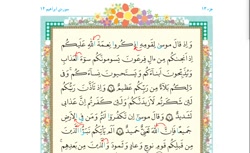 سورة ابراهيم ١٤
جزء ١٣
وَإِذْ قَالَ مُوسَىٰ لِقَوْمِهِ اذْكُرُوا نِعْمَةَ اللَّهِ عَلَيْكُمْ
إِذْ أَنْجَاكُمْ مِنْ آلِ فِرْعَوْنَ يَسُومُونَكُمْ سُوءَ الْعَذَابِ
وَيُذَبِّحُونَ أَبْنَاءَكُمْ وَيَسْتَحْيُونَ نِسَاءَكُمْ وَفِي
ذَٰلِكُمْ بَلَاءٌ مِنْ رَبِّكُمْ عَظِيمٌ وَإِذْ تَأَذَّنَ رَبُّكُمْ
لَئِنْ شَكَرْتُمْ لَأَزِيدَنَّكُمْ وَلَئِنْ كَفَرْتُمْ إِنَّ عَذَابِي
لَشَدِيدٌ وَقَالَ مُوسَىٰ إِنْ تَكْفُرُوا أَنْتُمْ وَمَنْ فِي الْأَرْضِ
جَمِيعًا فَإِنَّ اللَّهَ لَغَنِيٌّ حَمِيدٌ أَلَمْ يَأْتِكُمْ نَبَأُ الَّذِينَ
مِنْ قَبْلِكُمْ قَوْمِ نُوحٍ وَعَادٍ وَثَمُودَ وَالَّذِينَ مِنْ بَعْدِهِمْ